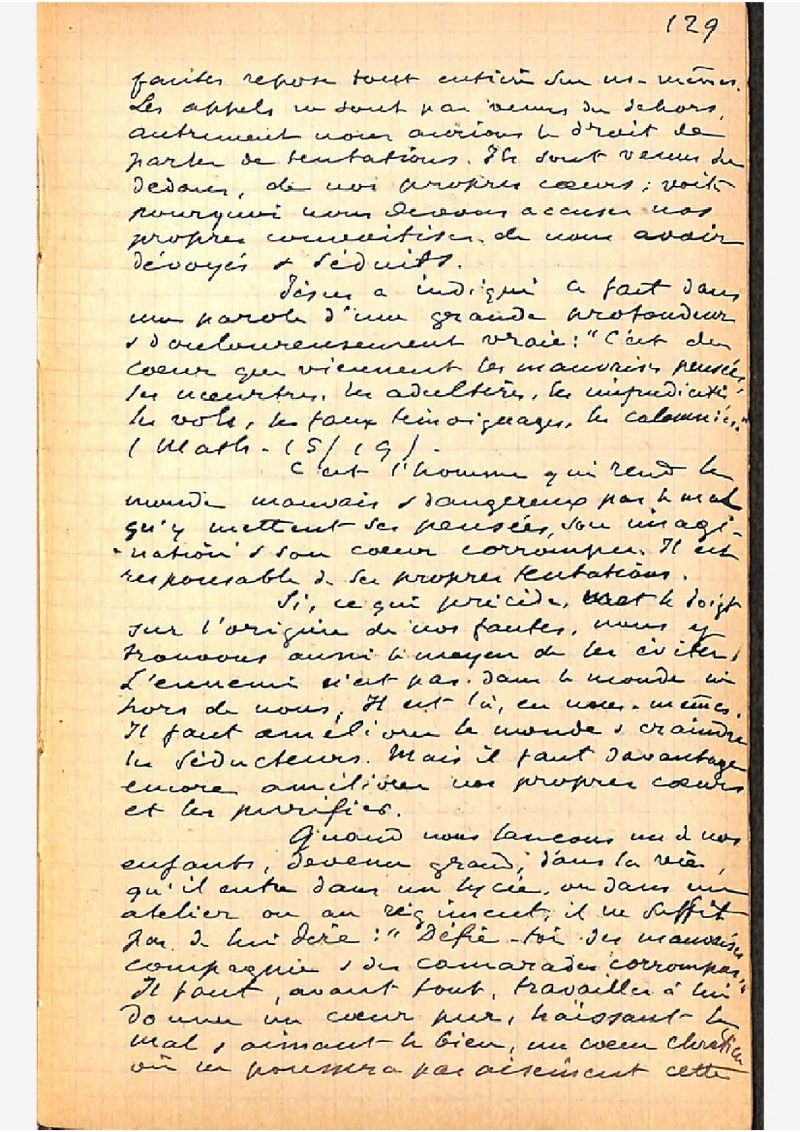 129
fautes repose tout entière sur ns-mêmes.
Les appels ne sont pas venus du dehors,
autrement nous aurions le droit de
parler de tentations. Ils sont venus du
dedans, de nos propres cœurs ; voilà
pourquoi nous devons accuser nos
propres convoitises de nous avoir
dévoyés & séduits.
Jésus a indiqué ce fait dans
une parole d'une grande profondeur
& douloureusement vraie : "C'est du
coeur que viennent les mauvaises pensées,
les meurtres, les adultères, les impudicités,
les vols, les faux témoignages, les calomnies."
(Math. 15/19).
C'est l'homme qui rend le
monde mauvais & dangereux par le mal
qu'y mettent ses pensées, son imagi-
-nation & son coeur corrompu. Il est
responsable de ses propres tentations.
Si, ce qui précède, met le doigt
sur l'origine de nos fautes, nous y
trouvons aussi le moyen de les éviter.
L'ennemi n'est pas dans le monde ni
hors de nous, Il est là, en nous-mêmes.
Il faut améliorer le monde & craindre
les séducteurs. Mais il faut davantage
encore améliorer nos propres cœurs
et les purifier.
Quand nous lançons un de nos
enfants, devenu grand, dans la vie,
qu'il entre dans un lycée, ou dans un
atelier ou au régiment, il ne suffit
pas de lui dire : "Défie-toi des mauvaises
compagnies & des camarades corrompus."
Il faut, avant tout, travailler à lui
donner un cœur pur, haïssant le
mal & aimant le bien, un coeur chrétien
où ne poussera pas aisément cette